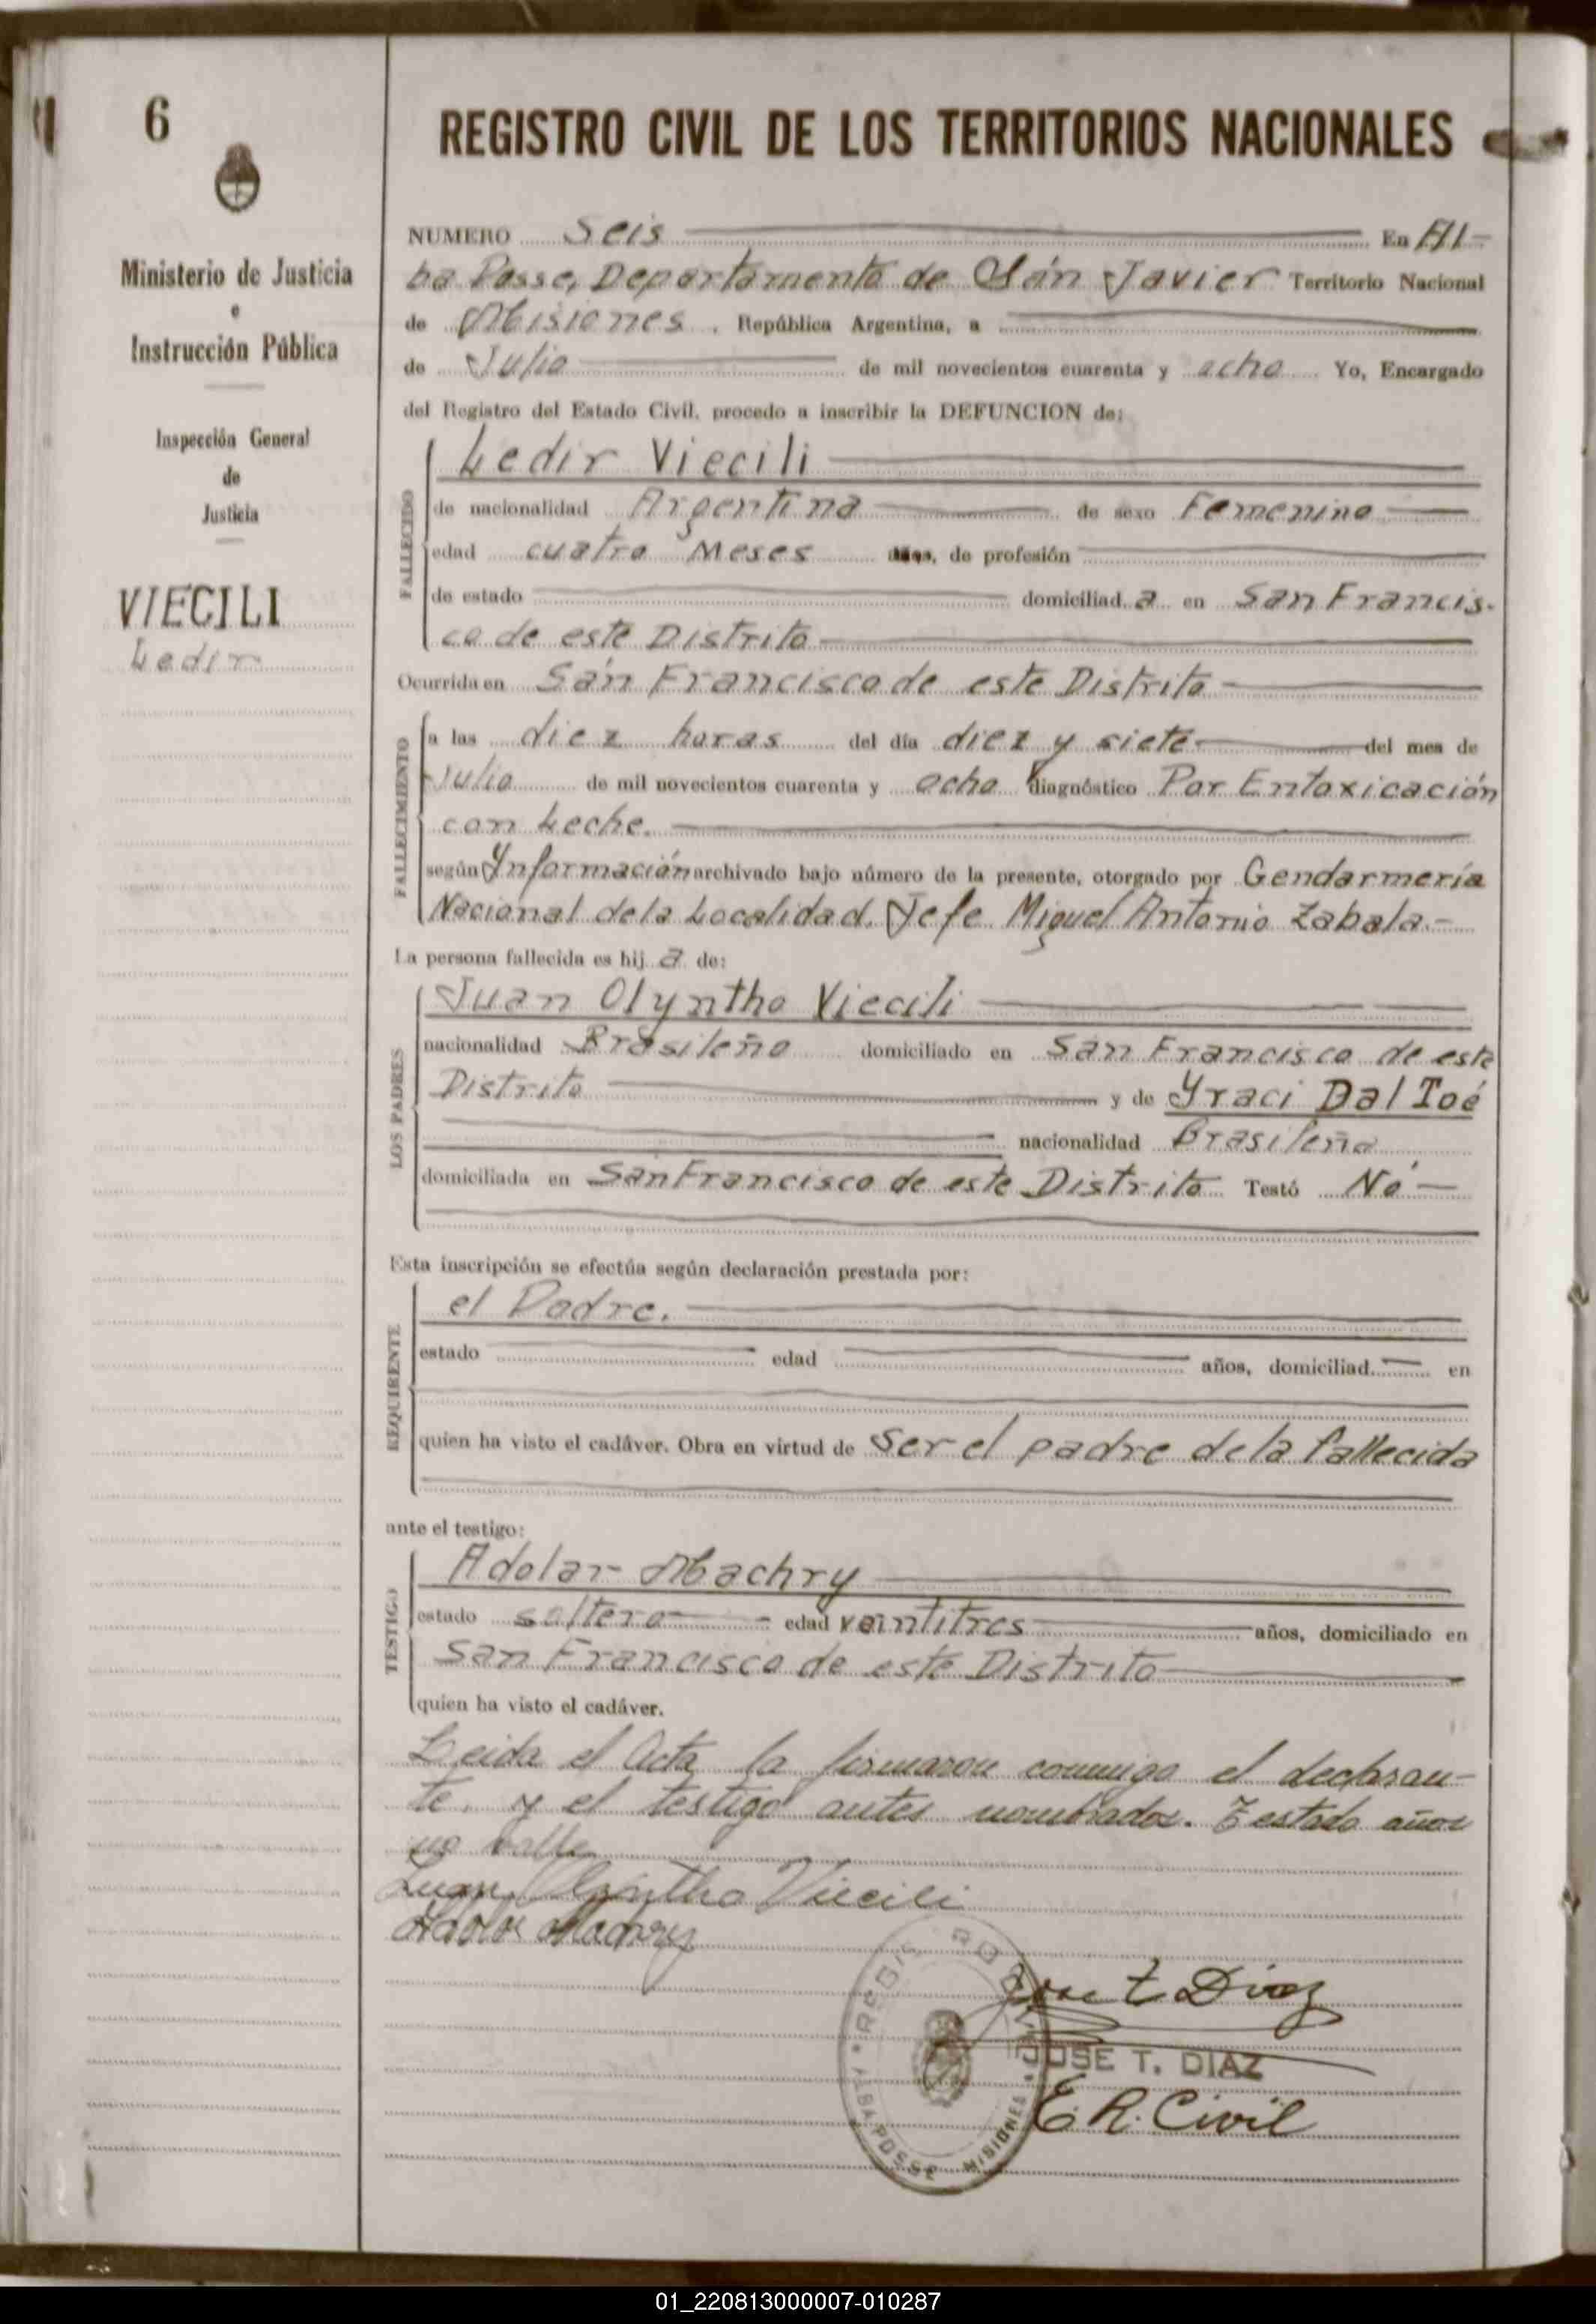 6
Ministerio de Justicia
e
Instrucción Pública
Inspección General
de
Justicia
VIECILI
Ledir
REGISTRO CIVIL DE LOS TERRITORIOS NACIONALES
NUMERO Seis En Al-
ba Posse, Departamento de San Javier Territorio Nacional
de Misiones, República Argentina, a
de Julio de mil novecientos cuarenta y ocho Yo, Encargado
del Registro del Estado Civil, procedo a inscribir la DEFUNCION de:
FALLECIDO
Ledir Viecili
de nacionalidad Argentina de sexo Femenino
edad cuatro Meses años, de profesión
de estado domiciliad a en San Francis-
co de este Distrito
Ocurrida en San Francisco de este Distrito
FALLECIMIENTO
a las diez horas del día diez y siete del mes de
Julio de mil novecientos cuarenta y ocho diagnóstico Por Entoxicación
con Leche.
según Información archivado bajo número de la presente, otorgado por Gendarmería
Nacional de la Localidad. Jefe Miguel Antonio Zabala.-
La persona fallecida es hij a de:
LOS PADRES
Juan Olyntho Viecili
nacionalidad Brasileño domiciliado en San Francisco de este
Distrito y de Yraci Dal Toé
nacionalidad Brasileña
domiciliada en San Francisco de este Distrito Testó No
Esta inscripción se efectúa según declaración prestada por:
REQUIRENTE
el Padre.
estado edad años, domiciliad en
quien ha visto el cadáver. Obra en virtud de Ser el padre de la fallecida
ante el testigo:
TESTIGO
Adolar Machry
estado soltero edad veintitres años, domiciliado en
San Francisco de este Distrito
quien ha visto el cadáver.
Leida el Acta la firmaron conmigo el declaran-
te y el testigo antes nombrados. Testado años
no valle
Juan Olyntho Viecili
Adolar Machry
Jose T Diaz
JOSE T. DIAZ
E R. Civil
ALBA POSSE MISIONES
01_220813000007-010287